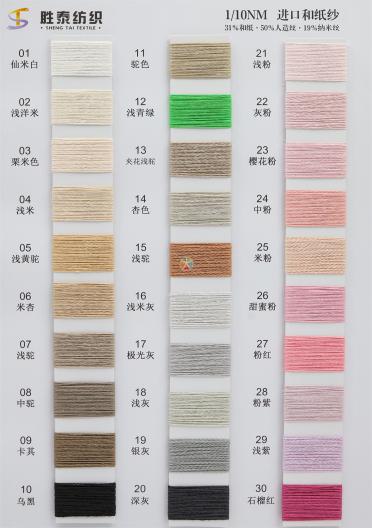 胜泰纺织
SHENG TAI TEXTILE
1/10NM 进口和纸纱
31%和纸·50%人造丝·19%纳米丝
01
仙米白
02
浅洋米
03
栗米色
04
浅米
05
浅黄驼
06
米杏
07
浅驼
08
中驼
09
卡其
10
乌黑
11
驼色
12
浅青绿
13
夹花浅驼
14
杏色
15
浅驼
16
浅米灰
17
极光灰
18
浅灰
19
银灰
20
深灰
21
浅粉
22
灰粉
23
樱花粉
24
中粉
25
米粉
26
甜蜜粉
27
粉红
28
粉紫
29
浅紫
30
石榴红